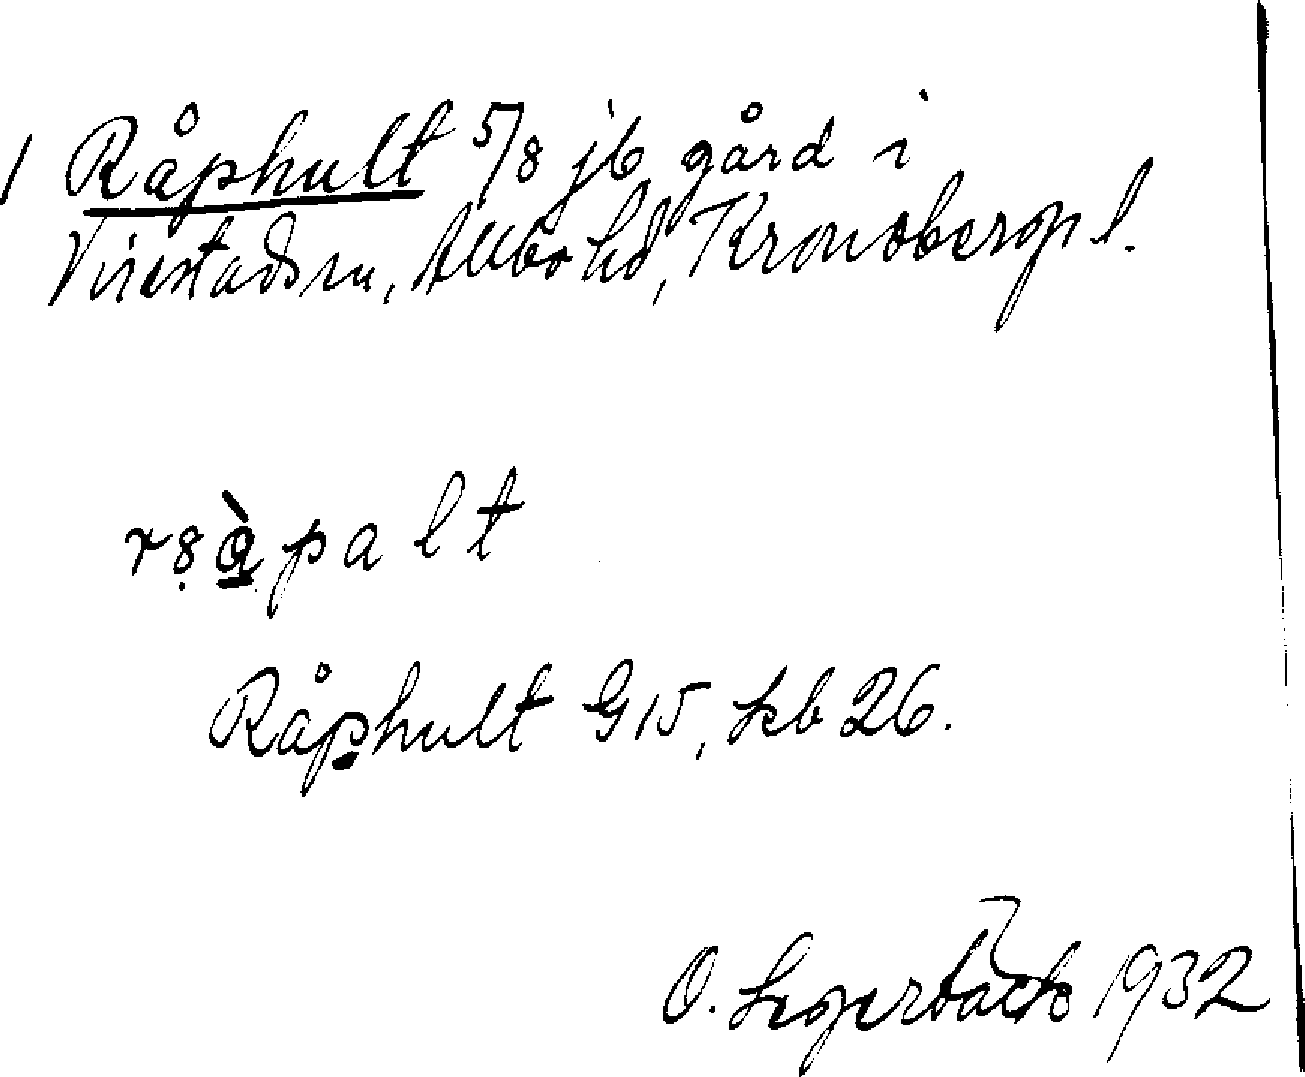 1 Råphult 5/8 jb gård i
Virestads sn, Allbo hd, Kronobergs l.
r8̣à̱palt
Råphult G15, kb 26.
O. Segerbäck 1932